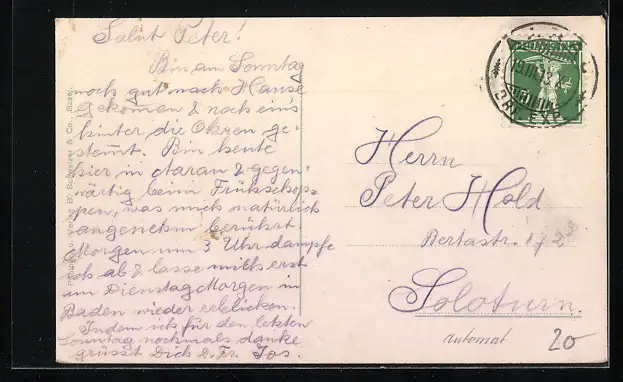 Salut Peter!
Bin am Sonntag
noch gut nach Hause
gekomen & noch eins
hinter die Ohren ge-
stemt. Bin heute
hier in Aarau & gegen-
wärtig beim Frühschop-
pen, was mich natürlich
angenehm berührt
Morgen um 3 Uhr dampfe
ich ab & lasse mich erst
am Dienstag Morgen in
Baden wieder erblicken.
Indem ich für den letzten
Sonntag nochmals danke
grüsst Dich d. Fr. Jos.
Herrn
Peter Hold
Bertastr. 17
Soloturn.
Automat
20